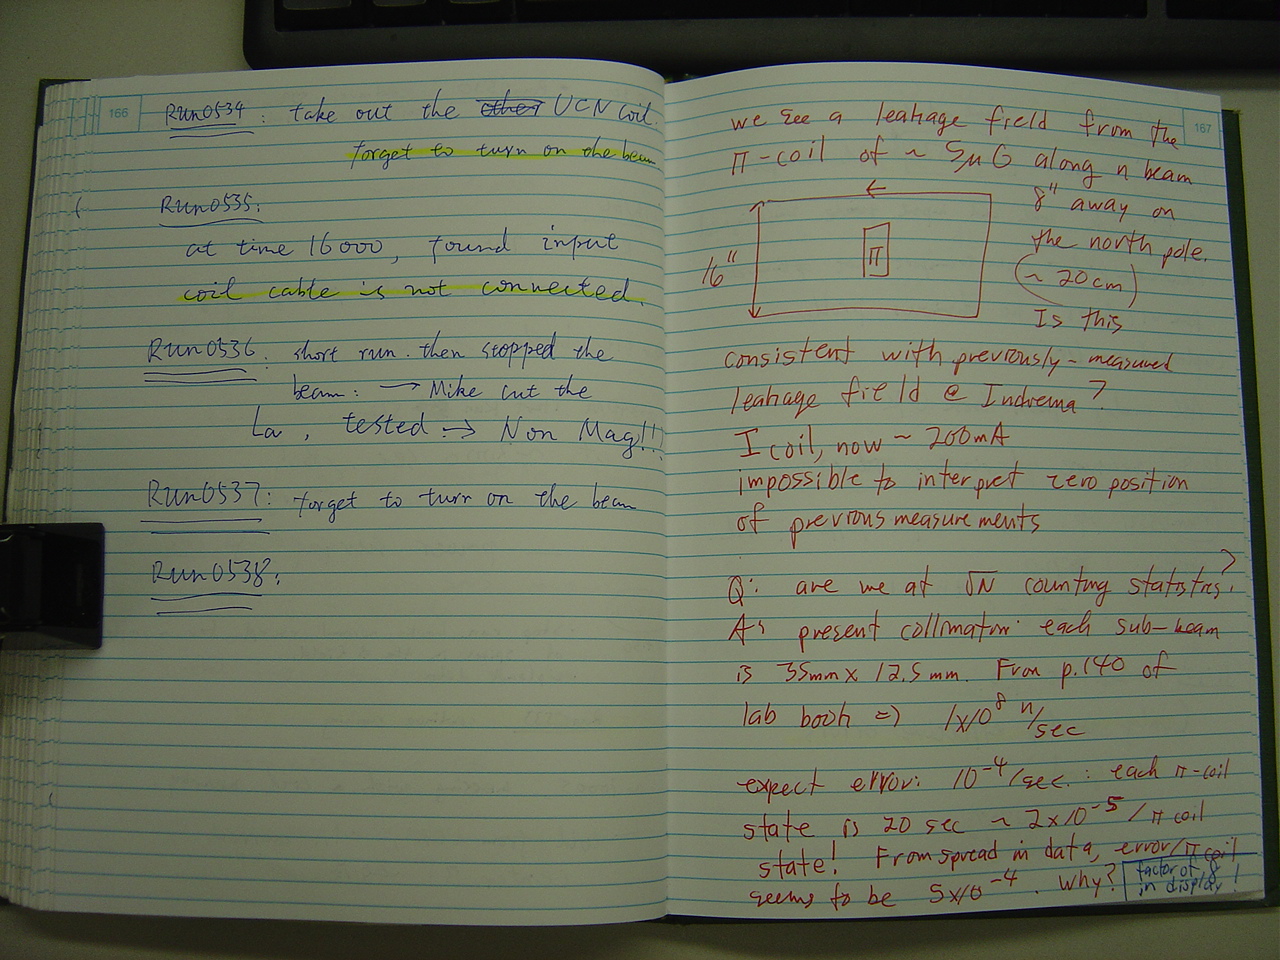 166
Run0534 : take out the other UCN coil.
forget to turn on the beam
Run0535:
at time 16000, found input
coil cable is not connected.
Run0536: short run. then stopped the
beam: → Mike cut the
La, tested → Non Mag!!!
Run0537: forget to turn on the beam
Run0538:
167
we see a leakage field from the
π-coil of ~ 5μG along n beam
8" away on
the north pole.
(~ 20cm)
16"
π
Is this
consistent with previously-measured
leakage field @ Indiana?
I coil, now ~ 200mA
impossible to interpret zero position
of previous measurements
Q: are we at √N counting statistics?
A: present collimator: each sub-beam
is 35mm x 12.5mm. From p.140 of
lab book => 1x10⁸ n/sec
expect error: 10⁻⁴/sec.: each π-coil
state is 20 sec ~ 2x10⁻⁵/π coil
state! From spread in data, error/π coil
seems to be 5x10⁻⁴. Why?
factor of 8
in display!